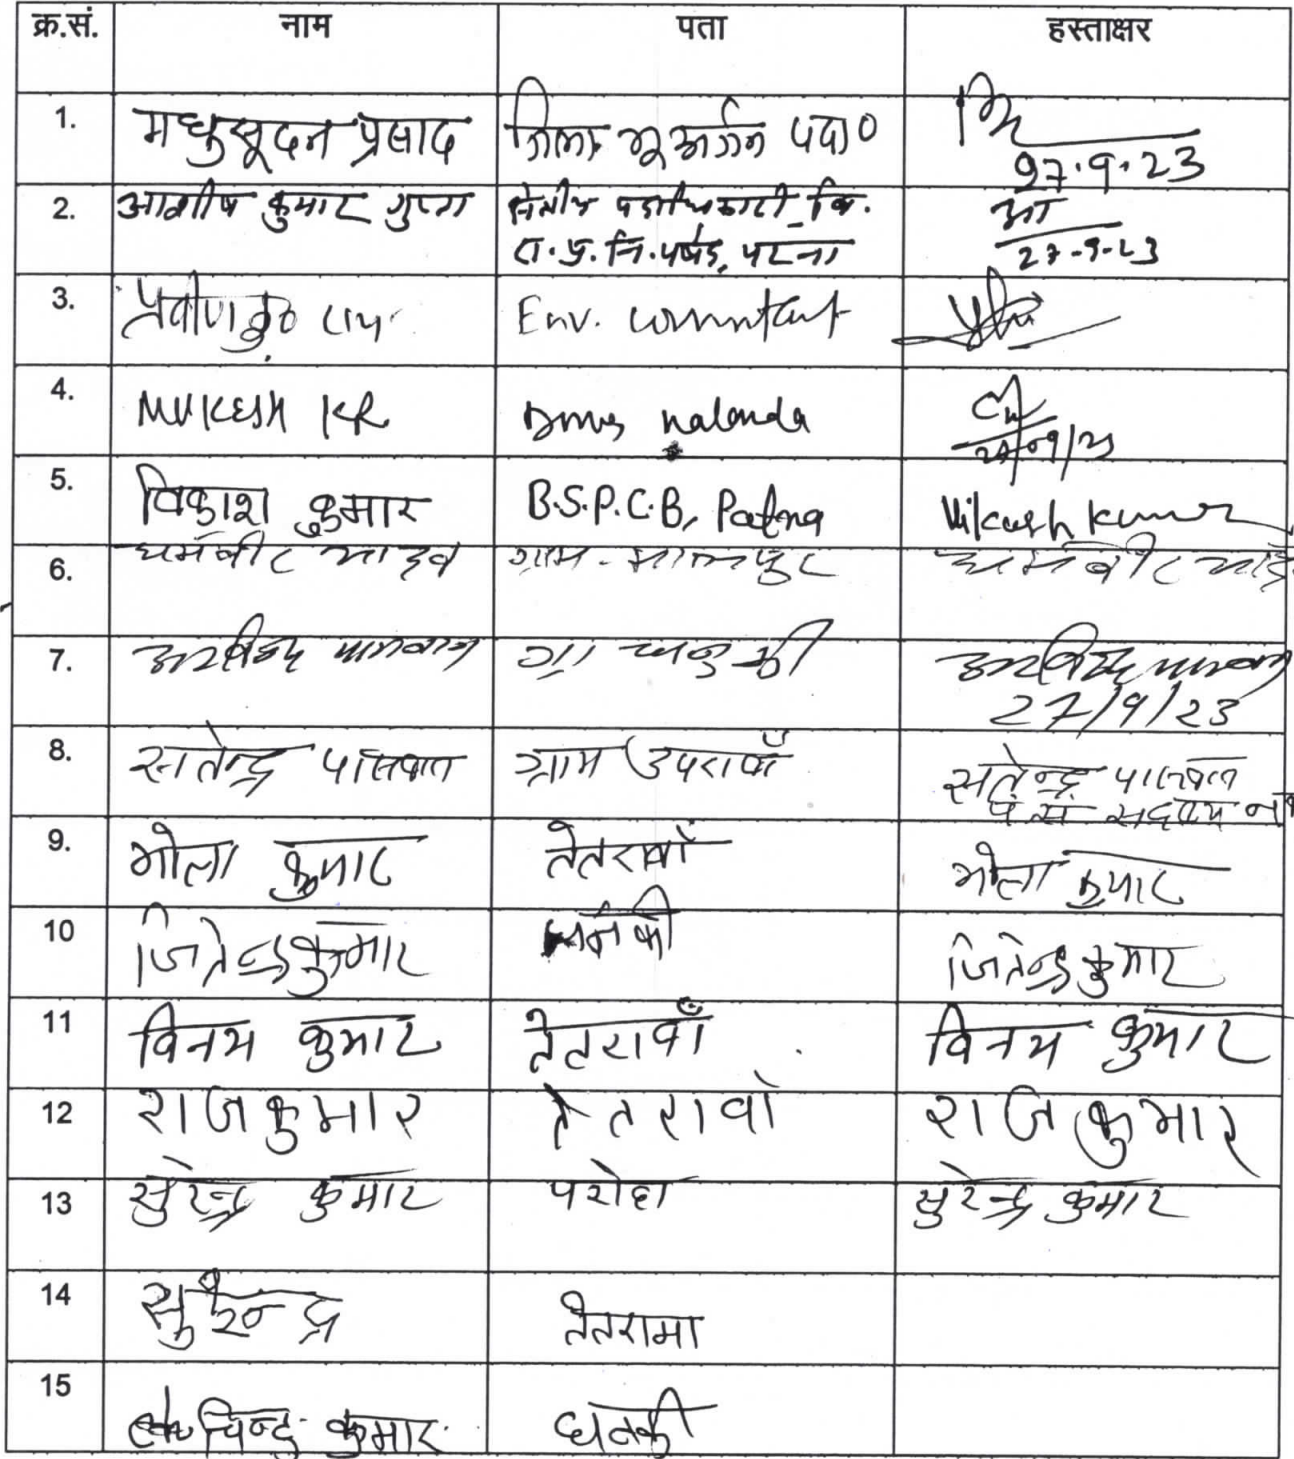 क्र.सं. नाम पता हस्ताक्षर
1. मधुसूदन प्रसाद जिला भू अर्जन पदा०
27.9.23
2. आशीष कुमार गुप्ता क्षेत्रीय पदाधिकारी बि.
रा.प्र.नि.पर्षद, पटना
27-9-23
3. प्रवीण कु० राय Env. consultant
4. MUKESH KR nalanda
5. विकाश कुमार B.S.P.C.B, Patna Vikash Kumar
6. धर्मवीर यादव ग्राम- धर्मवीर
7. अरविन्द पासवान अरविन्द पासवान
27/9/23
8. सतेन्द्र पासवान ग्राम सतेन्द्र पासवान
9. भोला कुमार तेतरावाँ भोला कुमार
10 जितेन्द्र कुमार जितेन्द्र कुमार
11 विनय कुमार तेतरावाँ विनय कुमार
12 राजकुमार तेतरावाँ राजकुमार
13 सुरेन्द्र कुमार परोहा सुरेन्द्र कुमार
14 सुरेन्द्र तेतरामा
15 कुमार धनकी